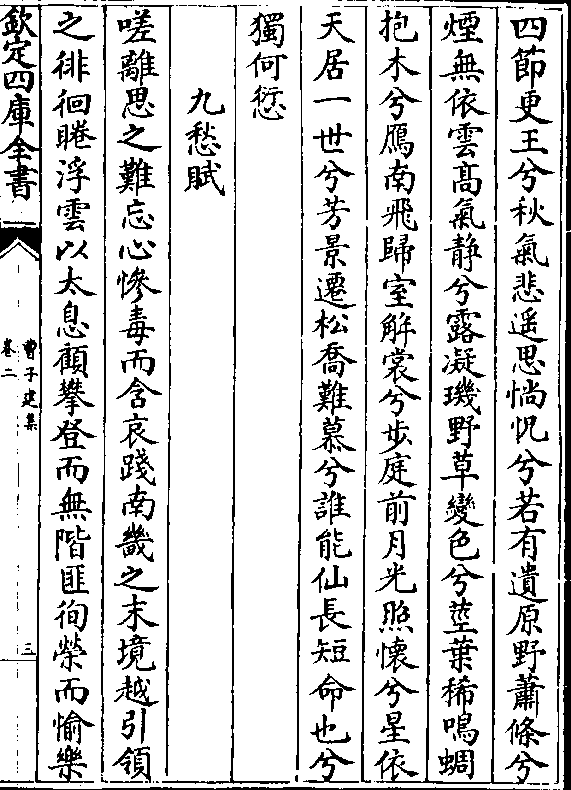 四節更王兮秋氣悲遥思惝怳兮若有遺原野蕭條兮
煙無依雲髙氣静兮露凝璣野草變色兮莖葉稀鳴蜩
抱木兮鴈南飛歸室解裳兮步庭前月光照懷兮星依
天居一世兮芳景遷松喬難慕兮誰能仙長短命也兮
獨何愆
九愁賦
嗟離思之難忘心慘毒而含哀踐南畿之末境越引領
之徘徊睠浮雲以太息顧攀登而無階匪徇榮而愉樂
欽定四庫全書
曹子建集
卷二
三